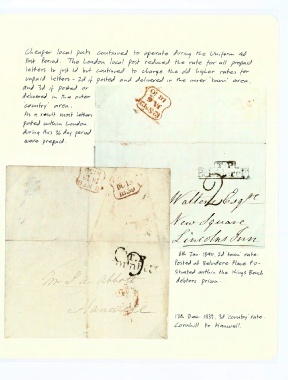 Cheaper local posts continued to operate during the Uniform 4d
Post Period. The London local post reduced the rate for all prepaid
letters to just 1d but continued to charge the old higher rates for
unpaid letters - 2d if posted and delivered in the inner 'town' area
and 3d if posted or
delivered in the outer
'country' area.
As a result most letters
posted within London
during this 36 day period
were prepaid.
Walters Esqre
New Square
Lincolns Inn
8th Jan 1840, 2d 'town' rate.
Posted at Belvedere Place PO -
situated within the Kings Bench
debtors prison.
Cornhill
Mr
Abbott
Hanwell
13th Dec 1839, 3d 'country' rate.
Cornhill to Hanwell.